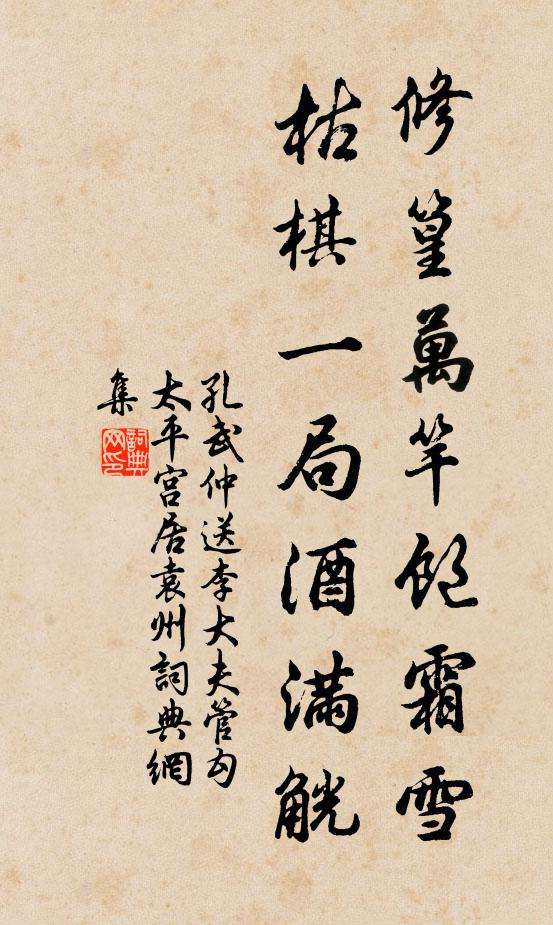 修篁萬竿飽霜雪
枯棋一局酒滿觥
孔武仲送李大夫管勾
太平宮居袁州詞典網
集
詞典網印